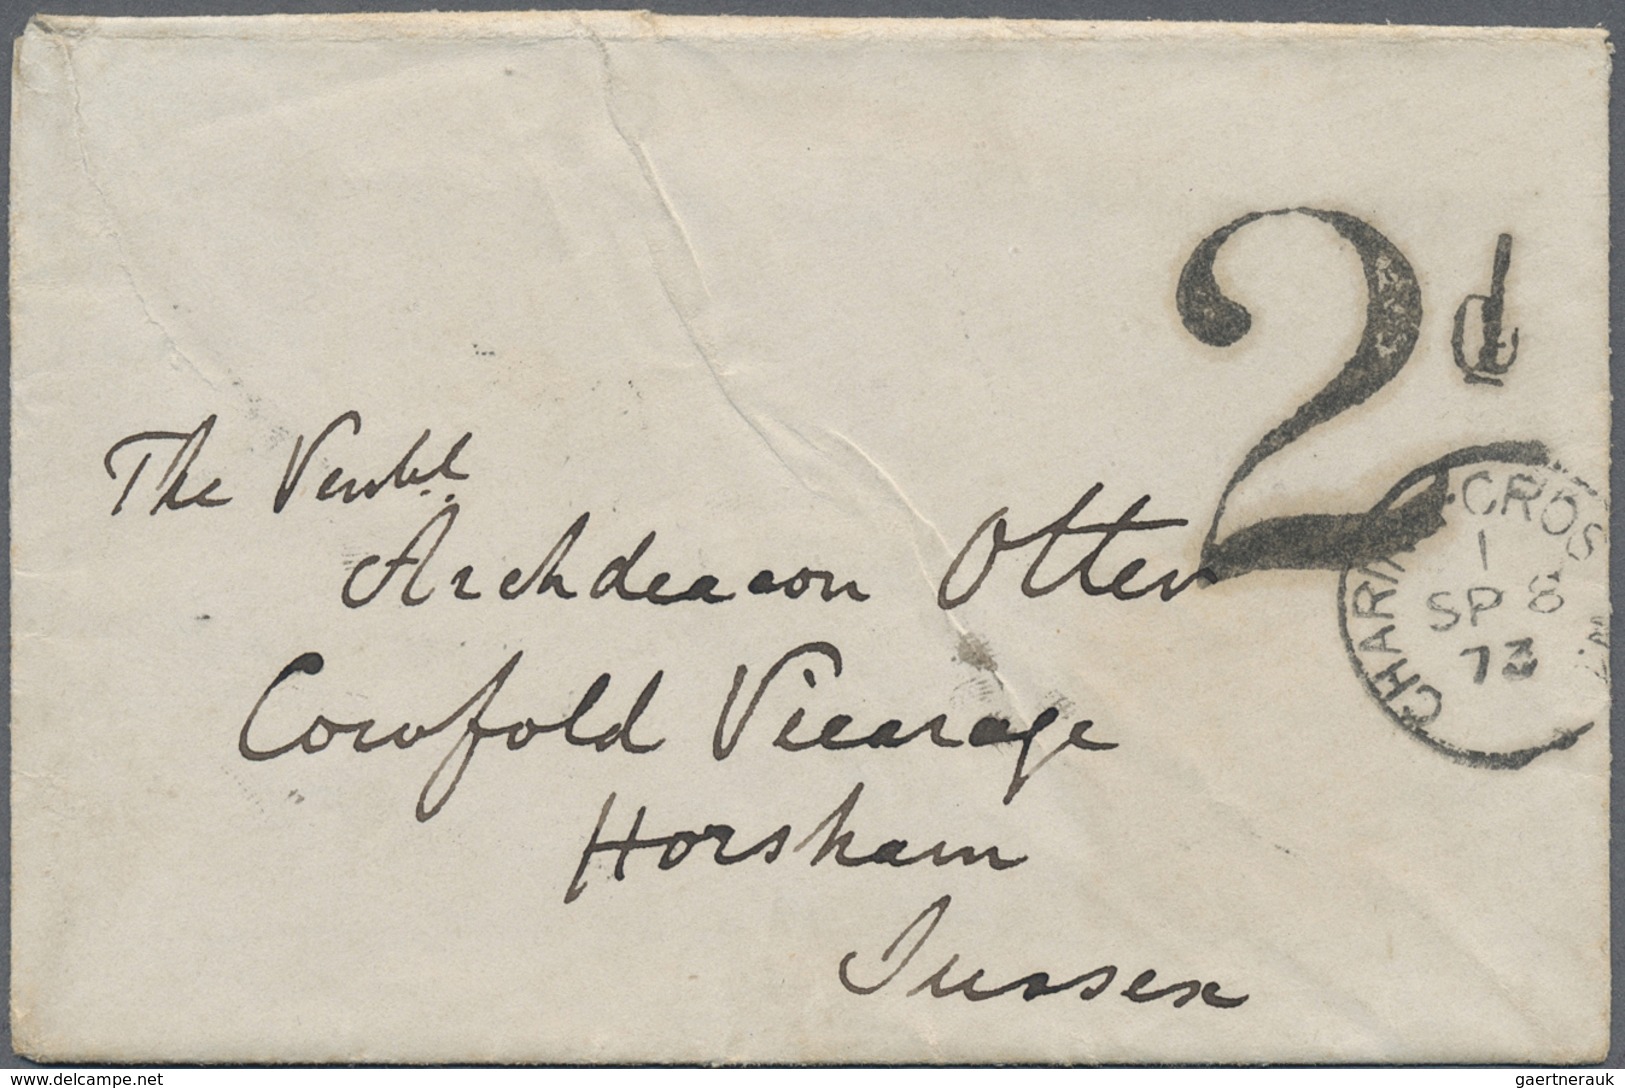 2d
CHARING CROSS
1
SP 8
73
The Venbl.
Archdeacon Otter
Cowfold Vicarage
Horsham
Sussex
www.delcampe.net
gaertnerauk